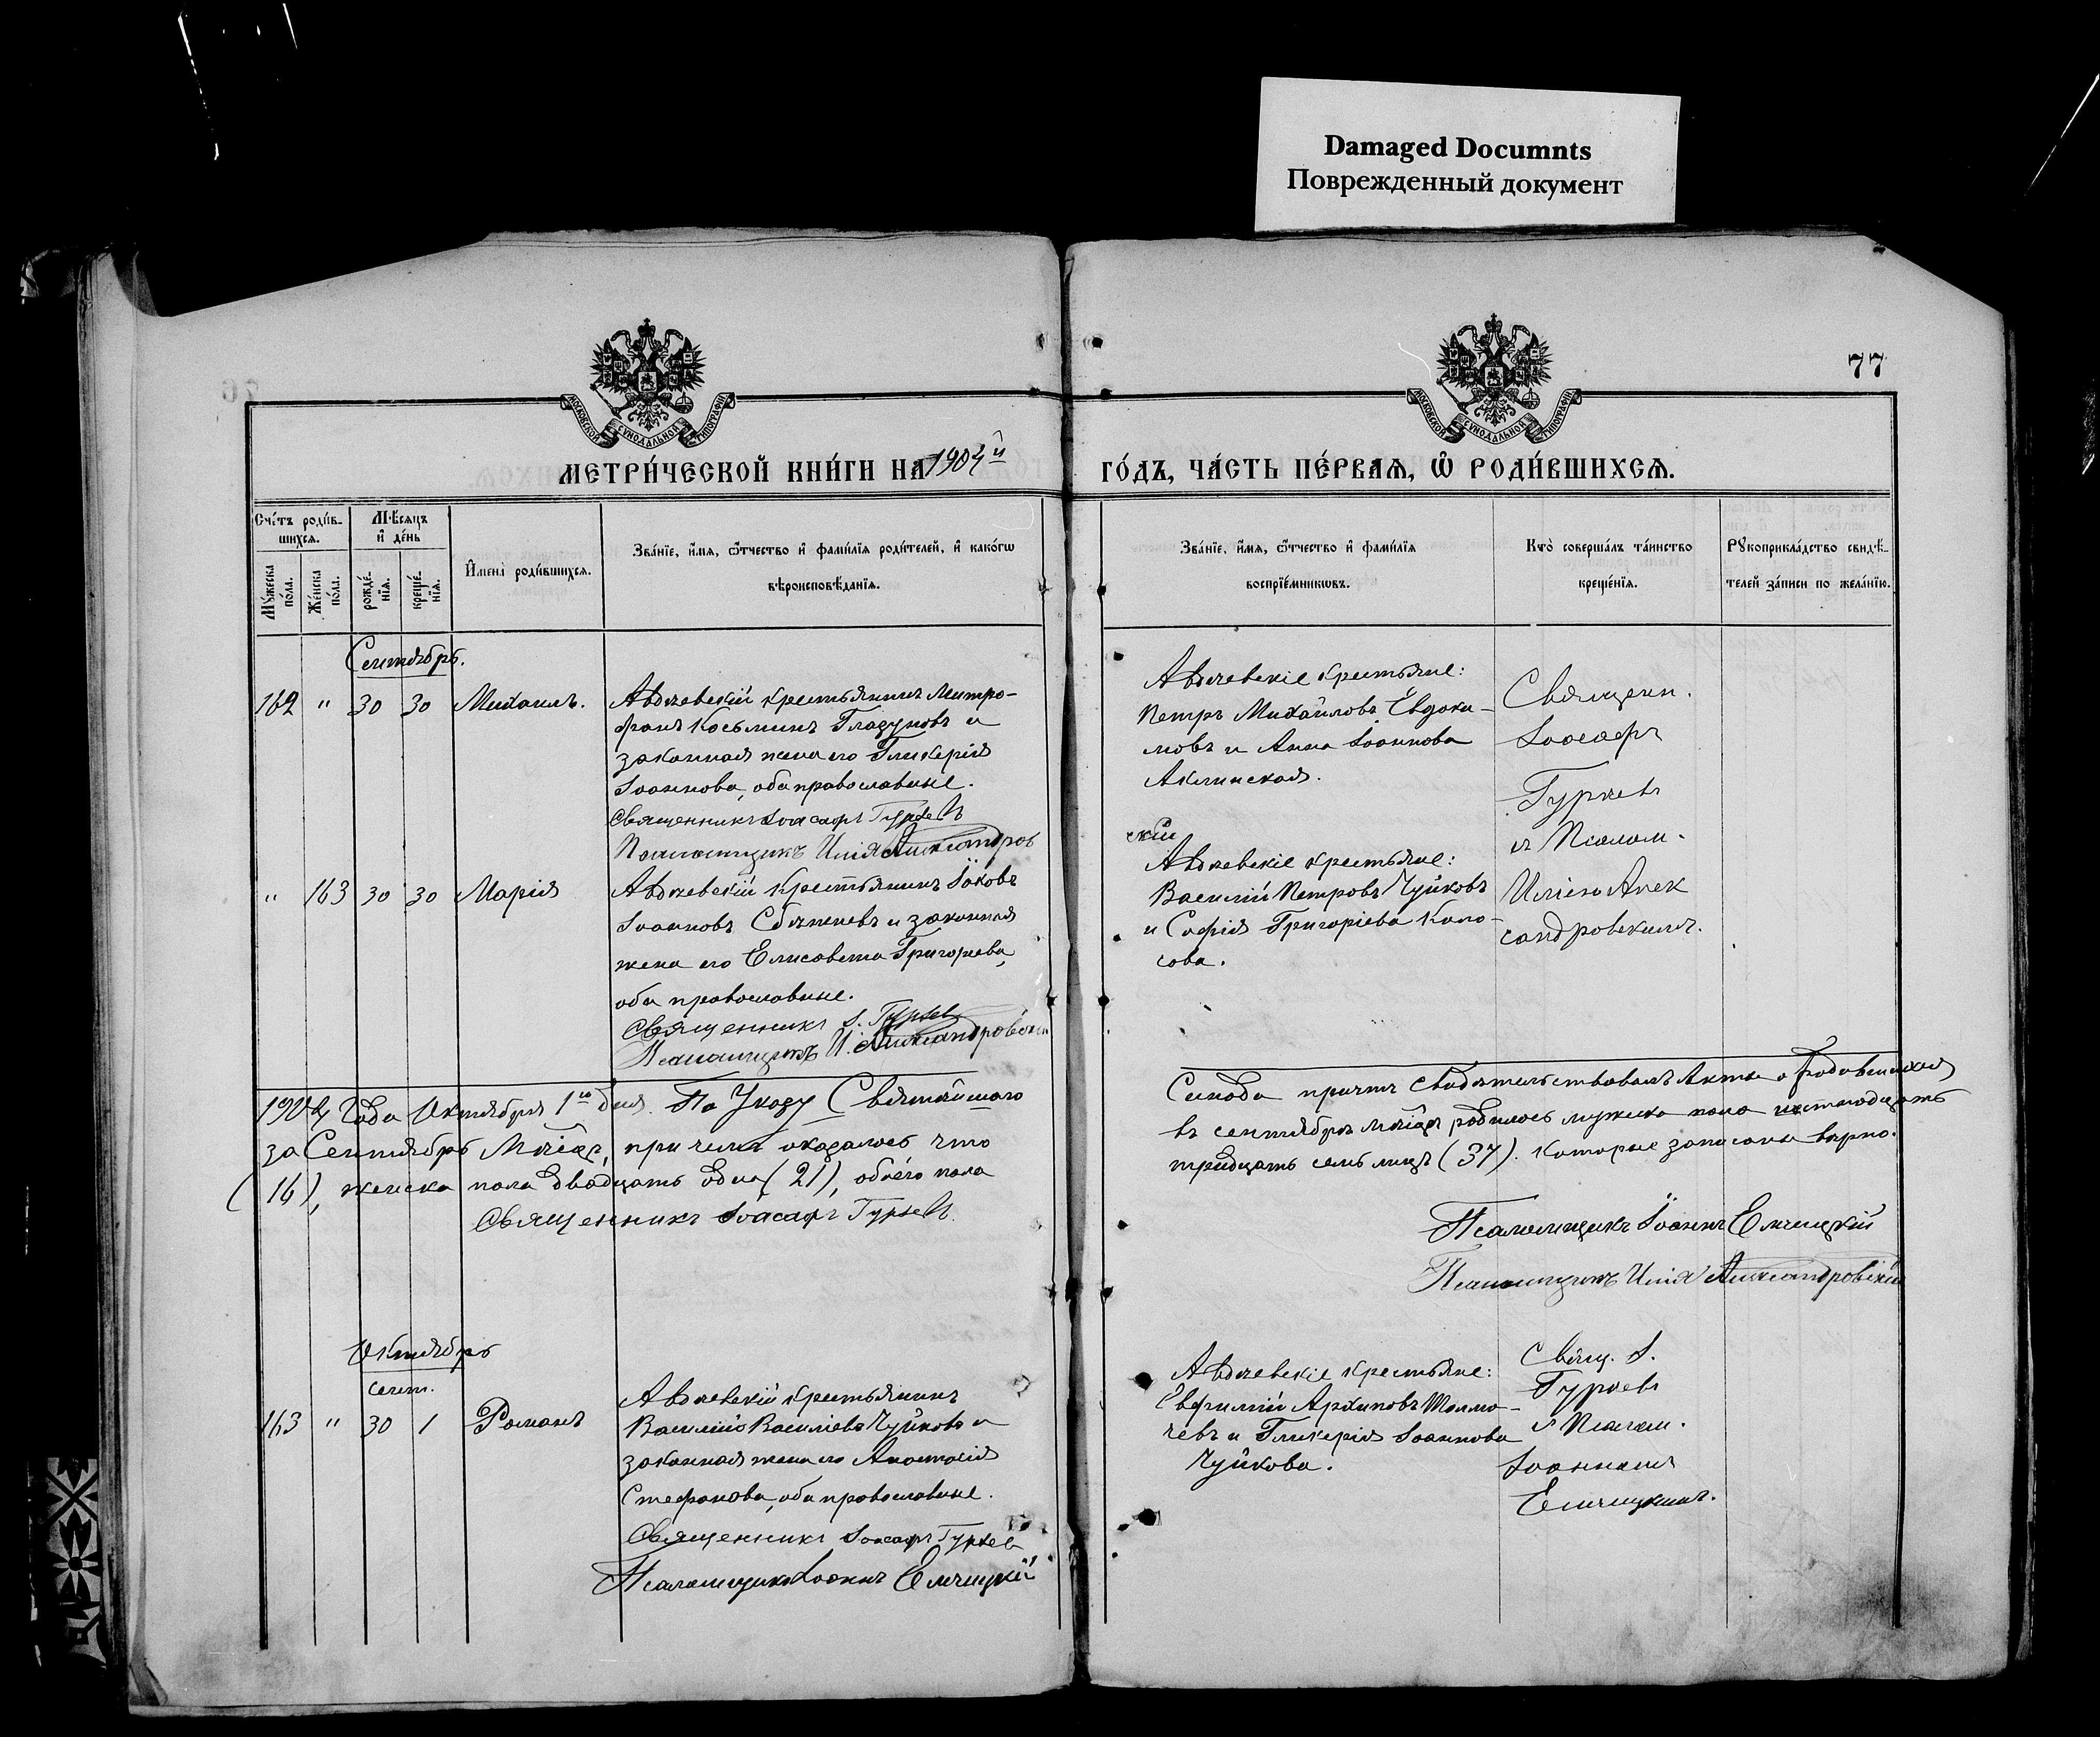 Damaged Documnts
Поврежденный документ
77
МОСКОВСКОЙ СѴНОДАЛЬНОЙ ТИПОГРАФІИ
МОСКОВСКОЙ СѴНОДАЛЬНОЙ ТИПОГРАФІИ
МЕТРИ́ЧЕСКОЙ КНИ́ГИ НА 1904й
ГО́ДЪ, ЧА́СТЬ ПЕ́РВАѦ, Ѡ РОДИ́ВШИХСѦ.
Сче́тъ роди́в-
шихсѧ.
Мѣ́сѧцъ
и де́нь
Мꙋ́жеска по́ла.
Же́нска по́ла.
рожде́-
нїѧ.
креще́-
нїѧ.
Имена̀ роди́вшихсѧ.
Зва́нїе, и́мѧ, ѻ́тчество и фами́лїѧ роди́телей, и како́гѡ
вѣроисповѣ́данїѧ.
Зва́нїе, и́мѧ, ѻ́тчество и фами́лїѧ
воспрїе́мникѡвъ.
Кто̀ соверша́лъ та́инство
креще́нїѧ.
Рꙋкоприкла́дство свидѣ́-
телей за́писи по жела́нїю.
Сентябрь.
162 " 30 30 Михаилъ.
Авдчевскій крестьянинъ Митро-
фанъ Косьминъ Гладуновъ и
законная жена его Гликерія
Іоаннова, оба православные.
Священникъ Іоасафъ Гурьевъ
Псаломщикъ Илія Александров
Авдчевскіе крестьяне:
Петръ Михайловъ Евдоки-
мовъ и Анна Іоаннова
Аклинская.
Священн.
Іоасафъ
Гурьевъ
и Псалом.
Иліею Алек
сандровскимъ.
скій
" 163 30 30 Марія
Авдчевскій крестьянинъ Іаковъ
Іоанновъ и законная
жена его Елисавета Григорьева,
оба православные.
Священникъ І. Гурьевъ
Псаломщикъ И. Александровскій
Авдчевскіе крестьяне:
Василій Петровъ Чуйковъ
и Софія Григоріева Коло-
сова.
1904 Года Октября 1го дня. По Указу Святѣйшаго
Синода причтъ свидѣтельствовалъ Акты о родившихся
за Сентябрь Мѣсяцъ, при чемъ оказалось что
въ сентябрѣ мѣсяцѣ родилось мужска пола шестнадцать
(16), женска пола двадцать одна (21), обоего пола
тридцать семь лицъ (37). которые записаны вѣрно.
Священникъ Іоасафъ Гурьевъ.
Псаломщикъ Іоаннъ Елчицкій
Псаломщикъ Илія Александровскій
Октябрь
Сент.
163 " 30 1 Романъ
Авдчевскій крестьянинъ
Василій Василіевъ Чуйковъ и
законная жена его Анастасія
Стефанова, оба православные.
Священникъ Іоасафъ Гурьевъ
Псаломщикъ Іоаннъ Елчицкій
Авдчевскіе крестьяне:
Евфимій Архиповъ Толма-
чевъ и Гликерія Іоаннова
Чуйкова.
Свящ. І.
Гурьевъ
и Псалом.
Іоанномъ
Елчицкимъ.